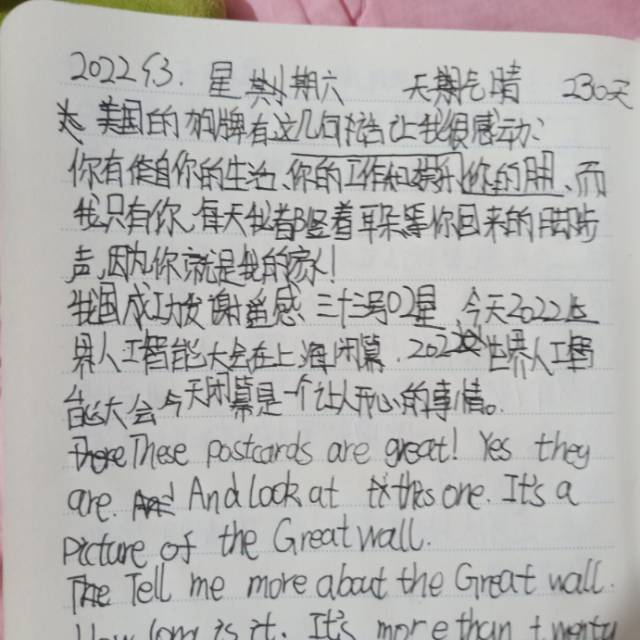 2022 9 3. 星期六 天期气晴 230天
美国的 牌有这几句话让我很感动:
你有你自己的生活、你的工作和娱乐你的朋、而
我只有你、每天我都竖着耳朵等你回来的脚步
声,因为你就是我的家人!
我国成功发 遥感 三十三号02星 今天2022
界人工智能大会在上海闭幕. 2022 世界人工智
能大会今天闭幕是一个让人开心的事情。
These postcards are great! Yes they
are And look at this one. It's a
Picture of the Great wall.
The Tell me more about the Great wall.
How long is it. It's more than twenty